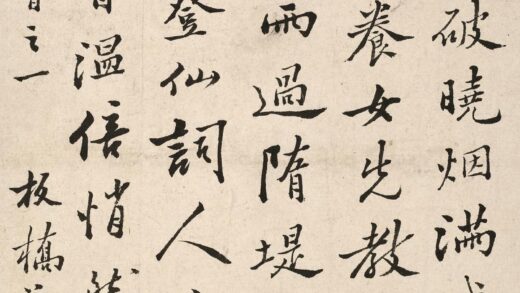 破曉烟滿
養女先教
雨過隋堤
登仙詞人
溫倍悄然
之一
板橋